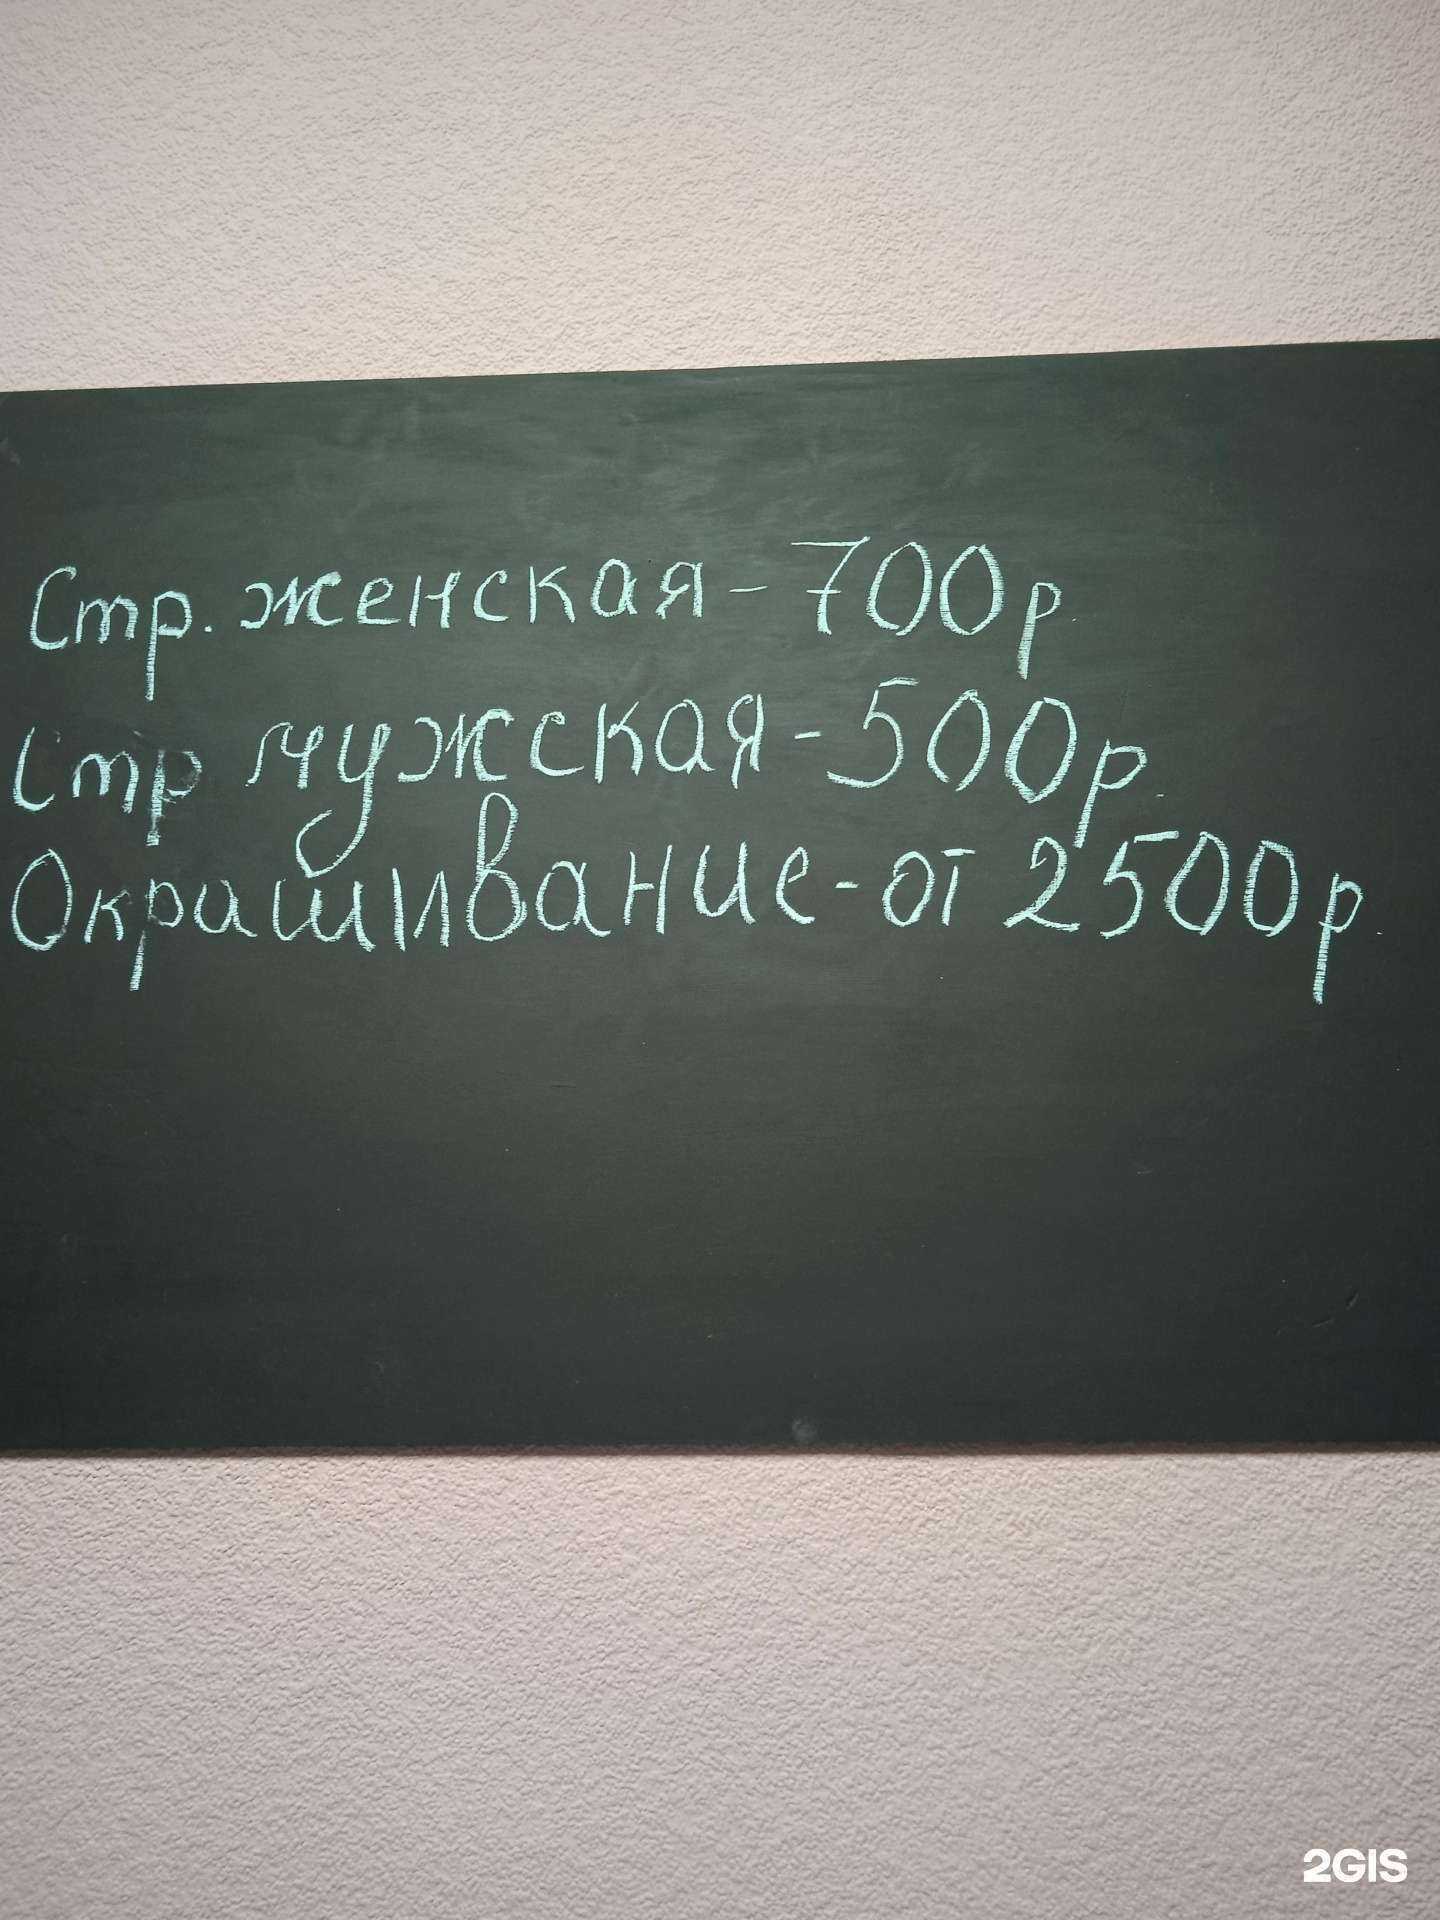 Стр. женская - 700р
Стр мужская - 500р.
Окрашивание - от 2500р.
2GIS